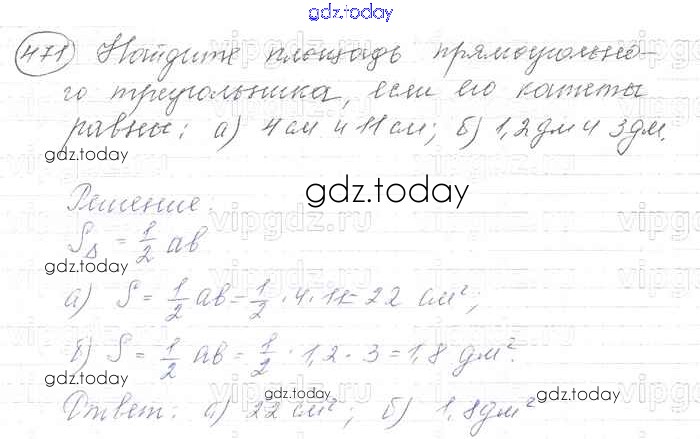 gdz.today
471 Найдите площадь прямоугольно-
го треугольника, если его катеты
равны: а) 4 см и 11 см; б) 1,2 дм и 3 дм.
gdz.today
gdz.today
Решение:
vipgdz.ru vipgdz.ru
S△ = 1/2 ab
gdz.today
а) S = 1/2 ab = 1/2 · 4 · 11 = 22 см²;
б) S = 1/2 ab = 1/2 · 1,2 · 3 = 1,8 дм².
gdz.today gdz.today gdz.today
Ответ: а) 22 см²; б) 1,8 дм²